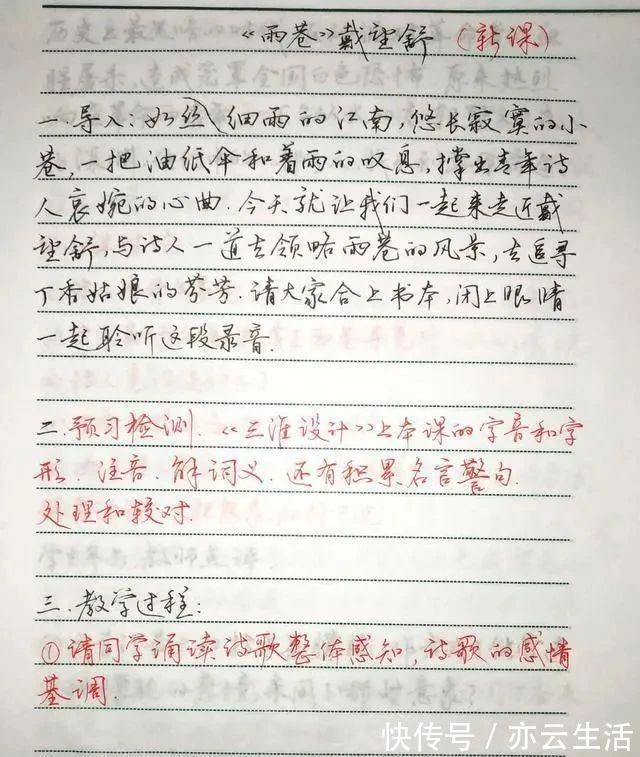 《雨巷》戴望舒 (新课)
一.导入:如丝细雨的江南,悠长寂寞的小
巷,一把油纸伞和着雨的叹息,撑出青年诗
人哀婉的心曲.今天就让我们一起来走近戴
望舒,与诗人一道去领略雨巷的风景,去追寻
丁香姑娘的芬芳.请大家合上书本,闭上眼睛
一起聆听这段录音.
二.预习检测.《三维设计》上本课的字音和字
形.注音.解词义.还有积累名言警句.
处理和较对.
三.教学过程:
①请同学诵读诗歌整体感知,诗歌的感情
基调.
快传号/亦云生活